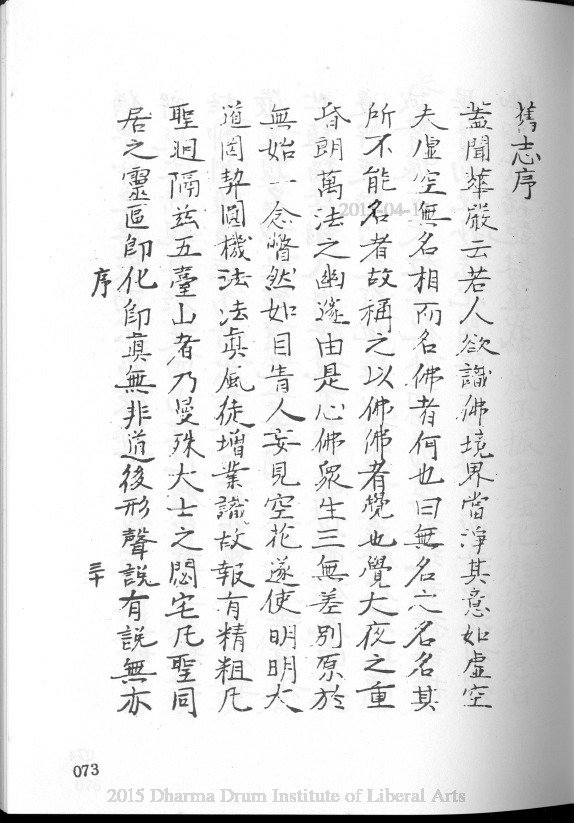 舊志序
蓋聞華嚴云若人欲識佛境界當淨其意如虛空
夫虛空無名相而名佛者何也曰無名之名名其
所不能名者故稱之以佛佛者覺也覺大夜之重
昏朗萬法之幽邃由是心佛衆生三無差別原於
無始一念瞥然如目眚人妄見空花遂使明明大
道固契圓機法法真風徒增業識故報有精粗凡
聖迥隔茲五臺山者乃曼殊大士之閟宅凡聖同
居之靈區即化即真無非道後形聲說有說無亦
序
三十
073
2015-04-1
2015 Dharma Drum Institute of Liberal Arts